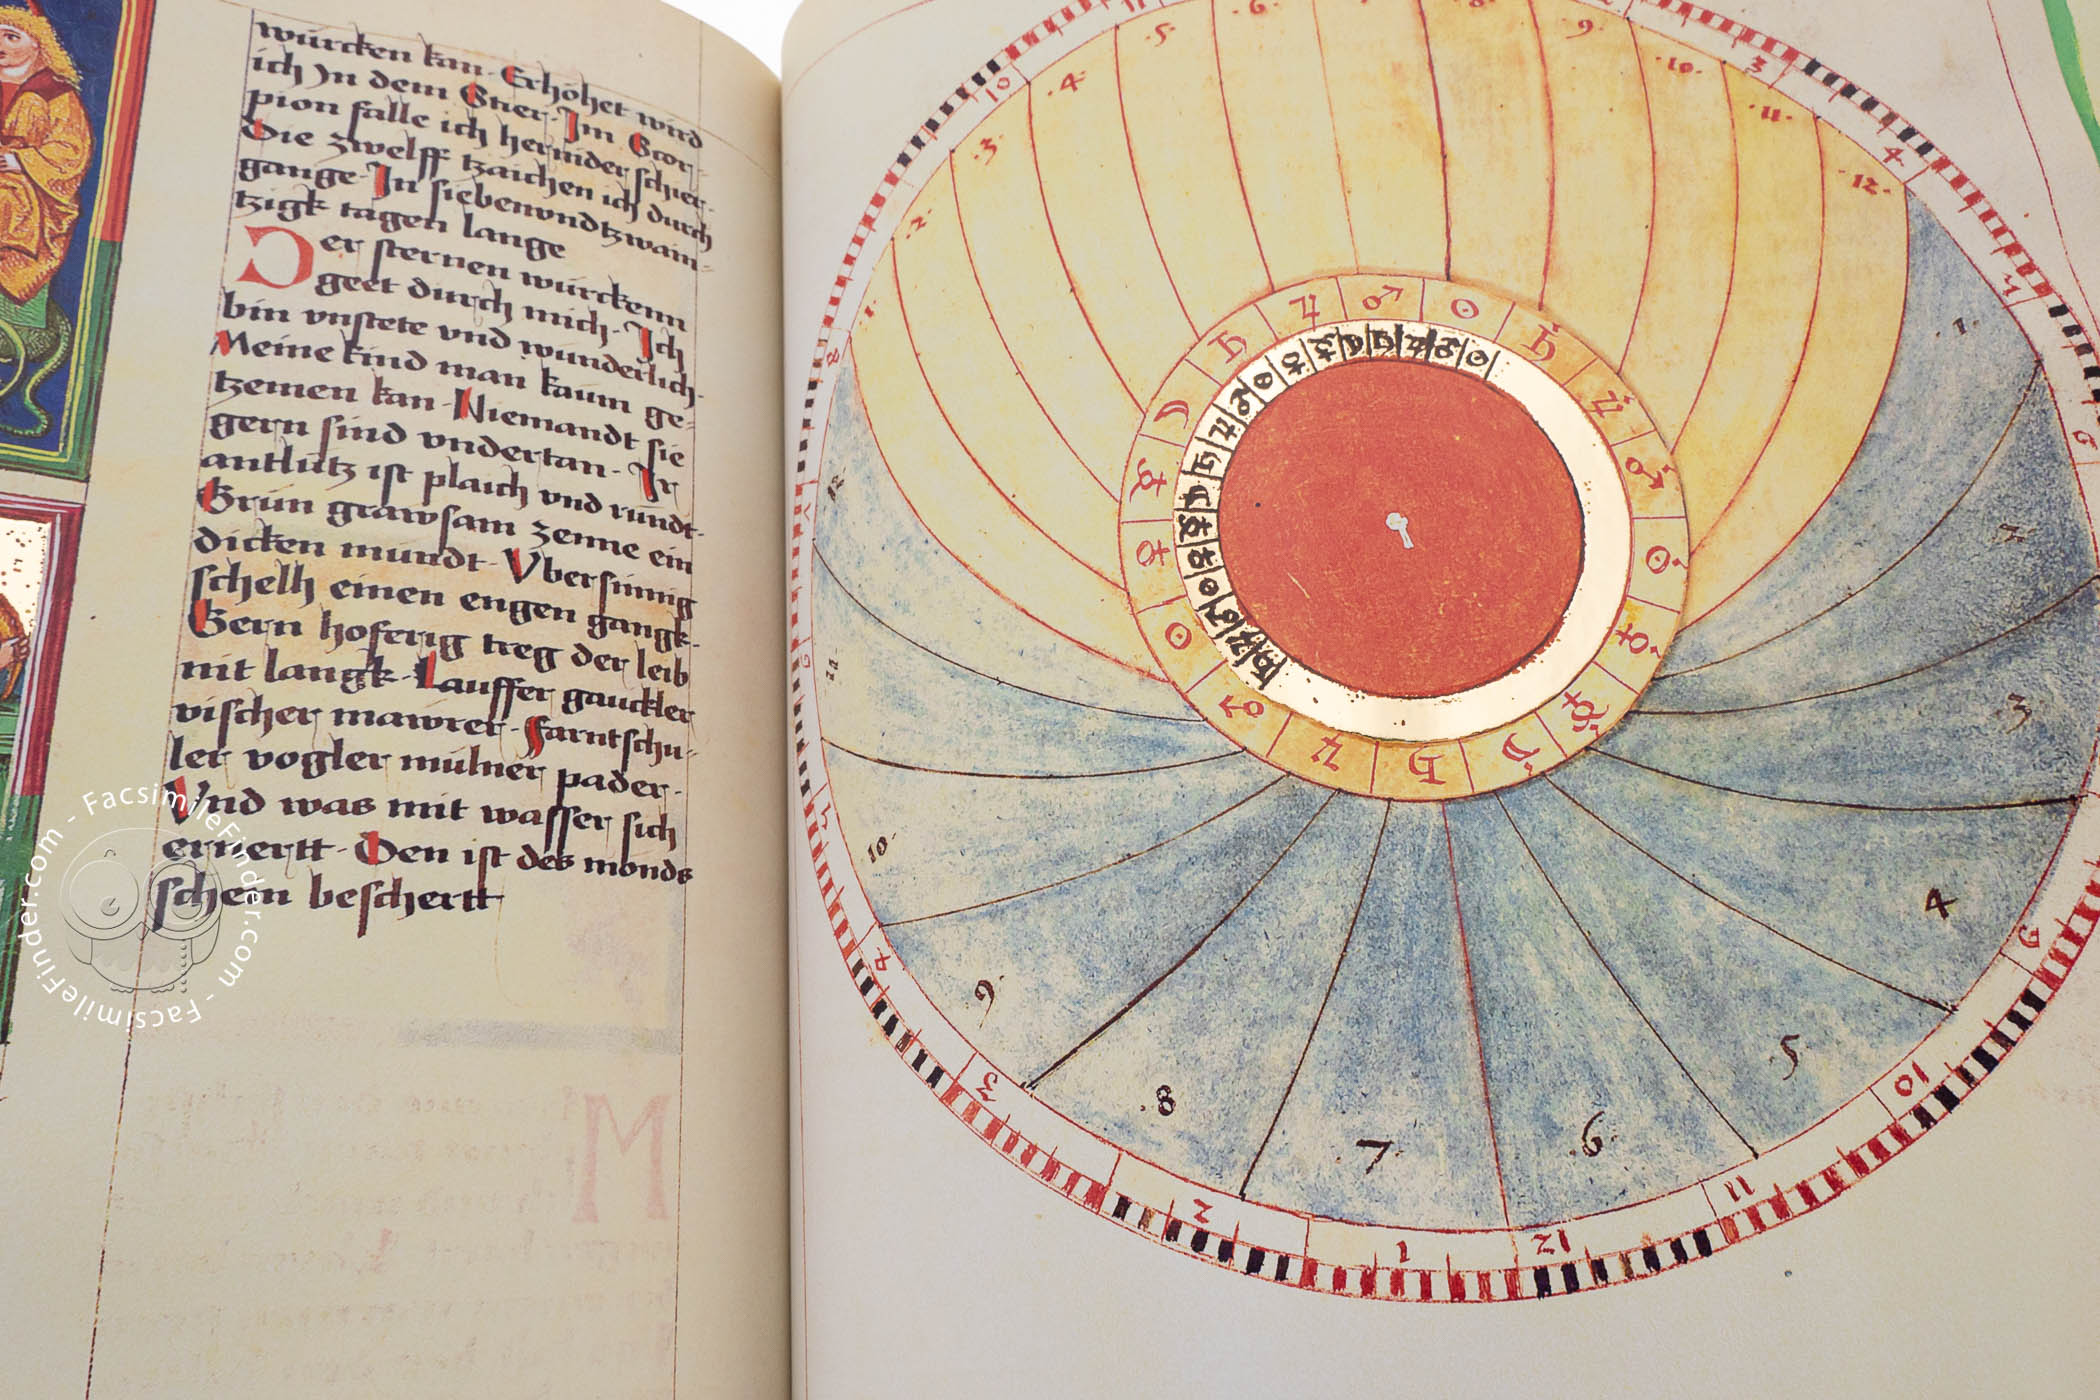 würcken kan · Erhöhet wird
ich Jn dem Stier · Jm Scor-
pion falle ich hernider schier ·
Die zwelff tzaichen ich durch
gange · Jn siebenvndtzwain-
tzigk tagen lange
Der sternen würckenn
geet durch mich · Ich
bin vnstete vnd wunderlich ·
Meine kind man kaum ge-
tzemen kan · Niemandt sie
gern sind vndertan · Ir
antlütz ist plaich vnd rundt ·
Grün grawsam zenne ein
dicken mundt · Vbersinnig
schelh einen engen gangk ·
Gern hoferig treg der leib
nit langk · Lauffer gauckler
vischer mawrer · Farntschu-
ler vogler mulner pader ·
Vnd was mit wasser sich
ernertt · Den ist des monds
schein beschertt
FacsimileFinder.com - FacsimileFinder.com -
·1·
·2·
·3·
·4·
·5·
·6·
·8·
·9·
·10·
·11·
·12·
10
11
3
4
♄ ♃ ♂ ☉ ♄ ♃ ♂ ☉
☽ ☿ ♀ ☉ ♂ ♃ ♄
·1·
3
4
5
6
7
8
9
10
11
12
1
2
3
4
10
11
12